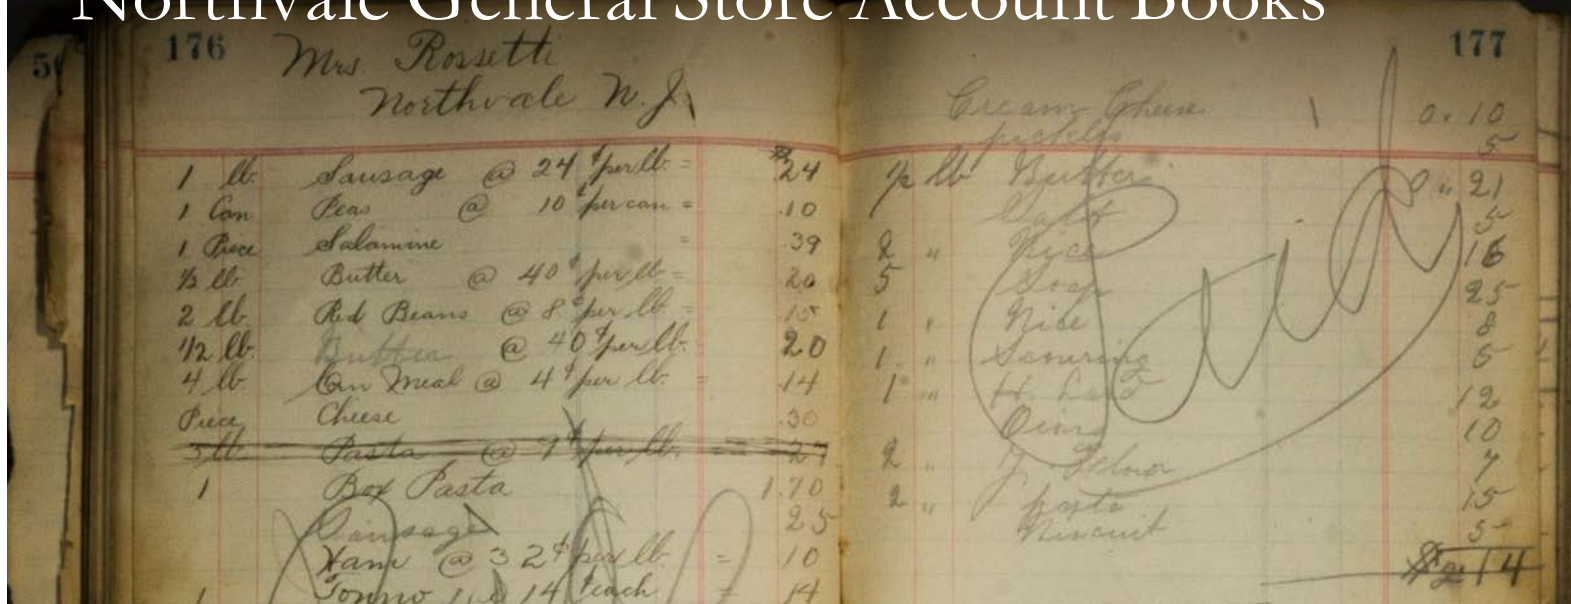 Northvale General Store Account Books
5
176
Mrs. Rossetti
Northvale N.J.
1 lb. Sausage @ 24¢ per lb. = 24
1 Can Peas @ 10¢ per can = .10
1 Piece Salamine = .39
½ lb. Butter @ 40¢ per lb = 20
2 lb. Red Beans @ 8¢ per lb. =
1/2 lb. Butter @ 40¢ per lb. 20
4 lb. Corn Meal @ 4¢ per lb. = .14
Piece Cheese .30
3 lb. Pasta @ 9¢ per lb. = 27
1 Box Pasta 1.70
Sausage 25
Ham @ 32¢ per lb = 10
1 Tonno @ 14¢ each = 14
177
Cream Cheese 0.10
pickles 5
1/2 lb Butter 0 " 21
Salt 5
2 " Rice 16
5 Soap 25
1 " 8
1 " Scouring 5
1 " 12
10
2 " 7
2 " pasta 15
Biscuit 5
$2.14
Paid